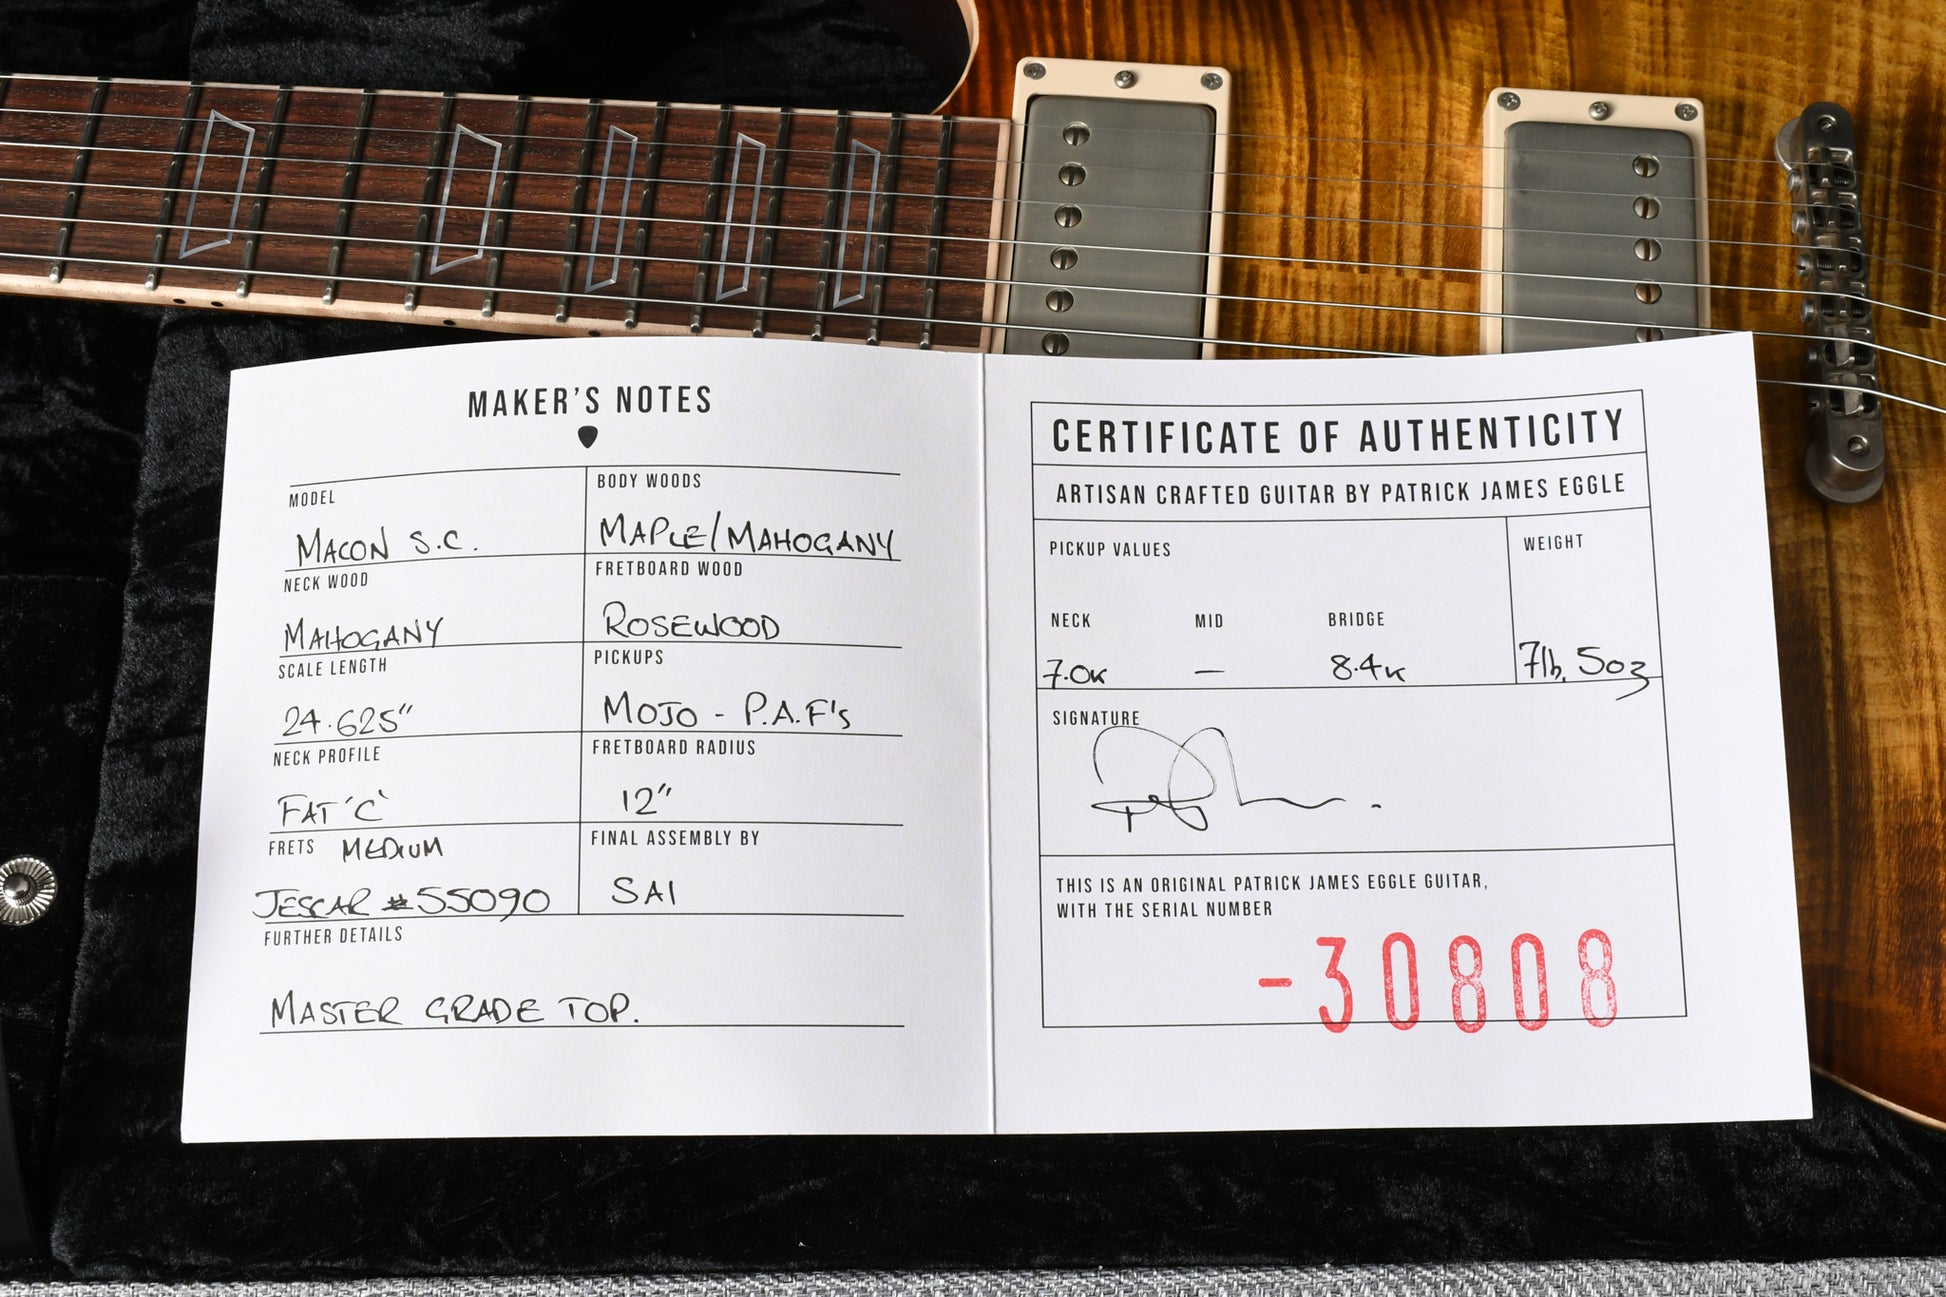 MAKER'S NOTES
MODEL
MACON S.C.
BODY WOODS
MAPLE/MAHOGANY
NECK WOOD
MAHOGANY
FRETBOARD WOOD
ROSEWOOD
SCALE LENGTH
24.625"
PICKUPS
MOJO - P.A.F's
NECK PROFILE
FAT 'C'
FRETBOARD RADIUS
12"
FRETS MEDIUM
JESCAR #55090
FINAL ASSEMBLY BY
SAI
FURTHER DETAILS
MASTER GRADE TOP.
CERTIFICATE OF AUTHENTICITY
ARTISAN CRAFTED GUITAR BY PATRICK JAMES EGGLE
PICKUP VALUES
WEIGHT
NECK MID BRIDGE
7.0K — 8.4K
7lb, 5oz
SIGNATURE
THIS IS AN ORIGINAL PATRICK JAMES EGGLE GUITAR,
WITH THE SERIAL NUMBER
-30808